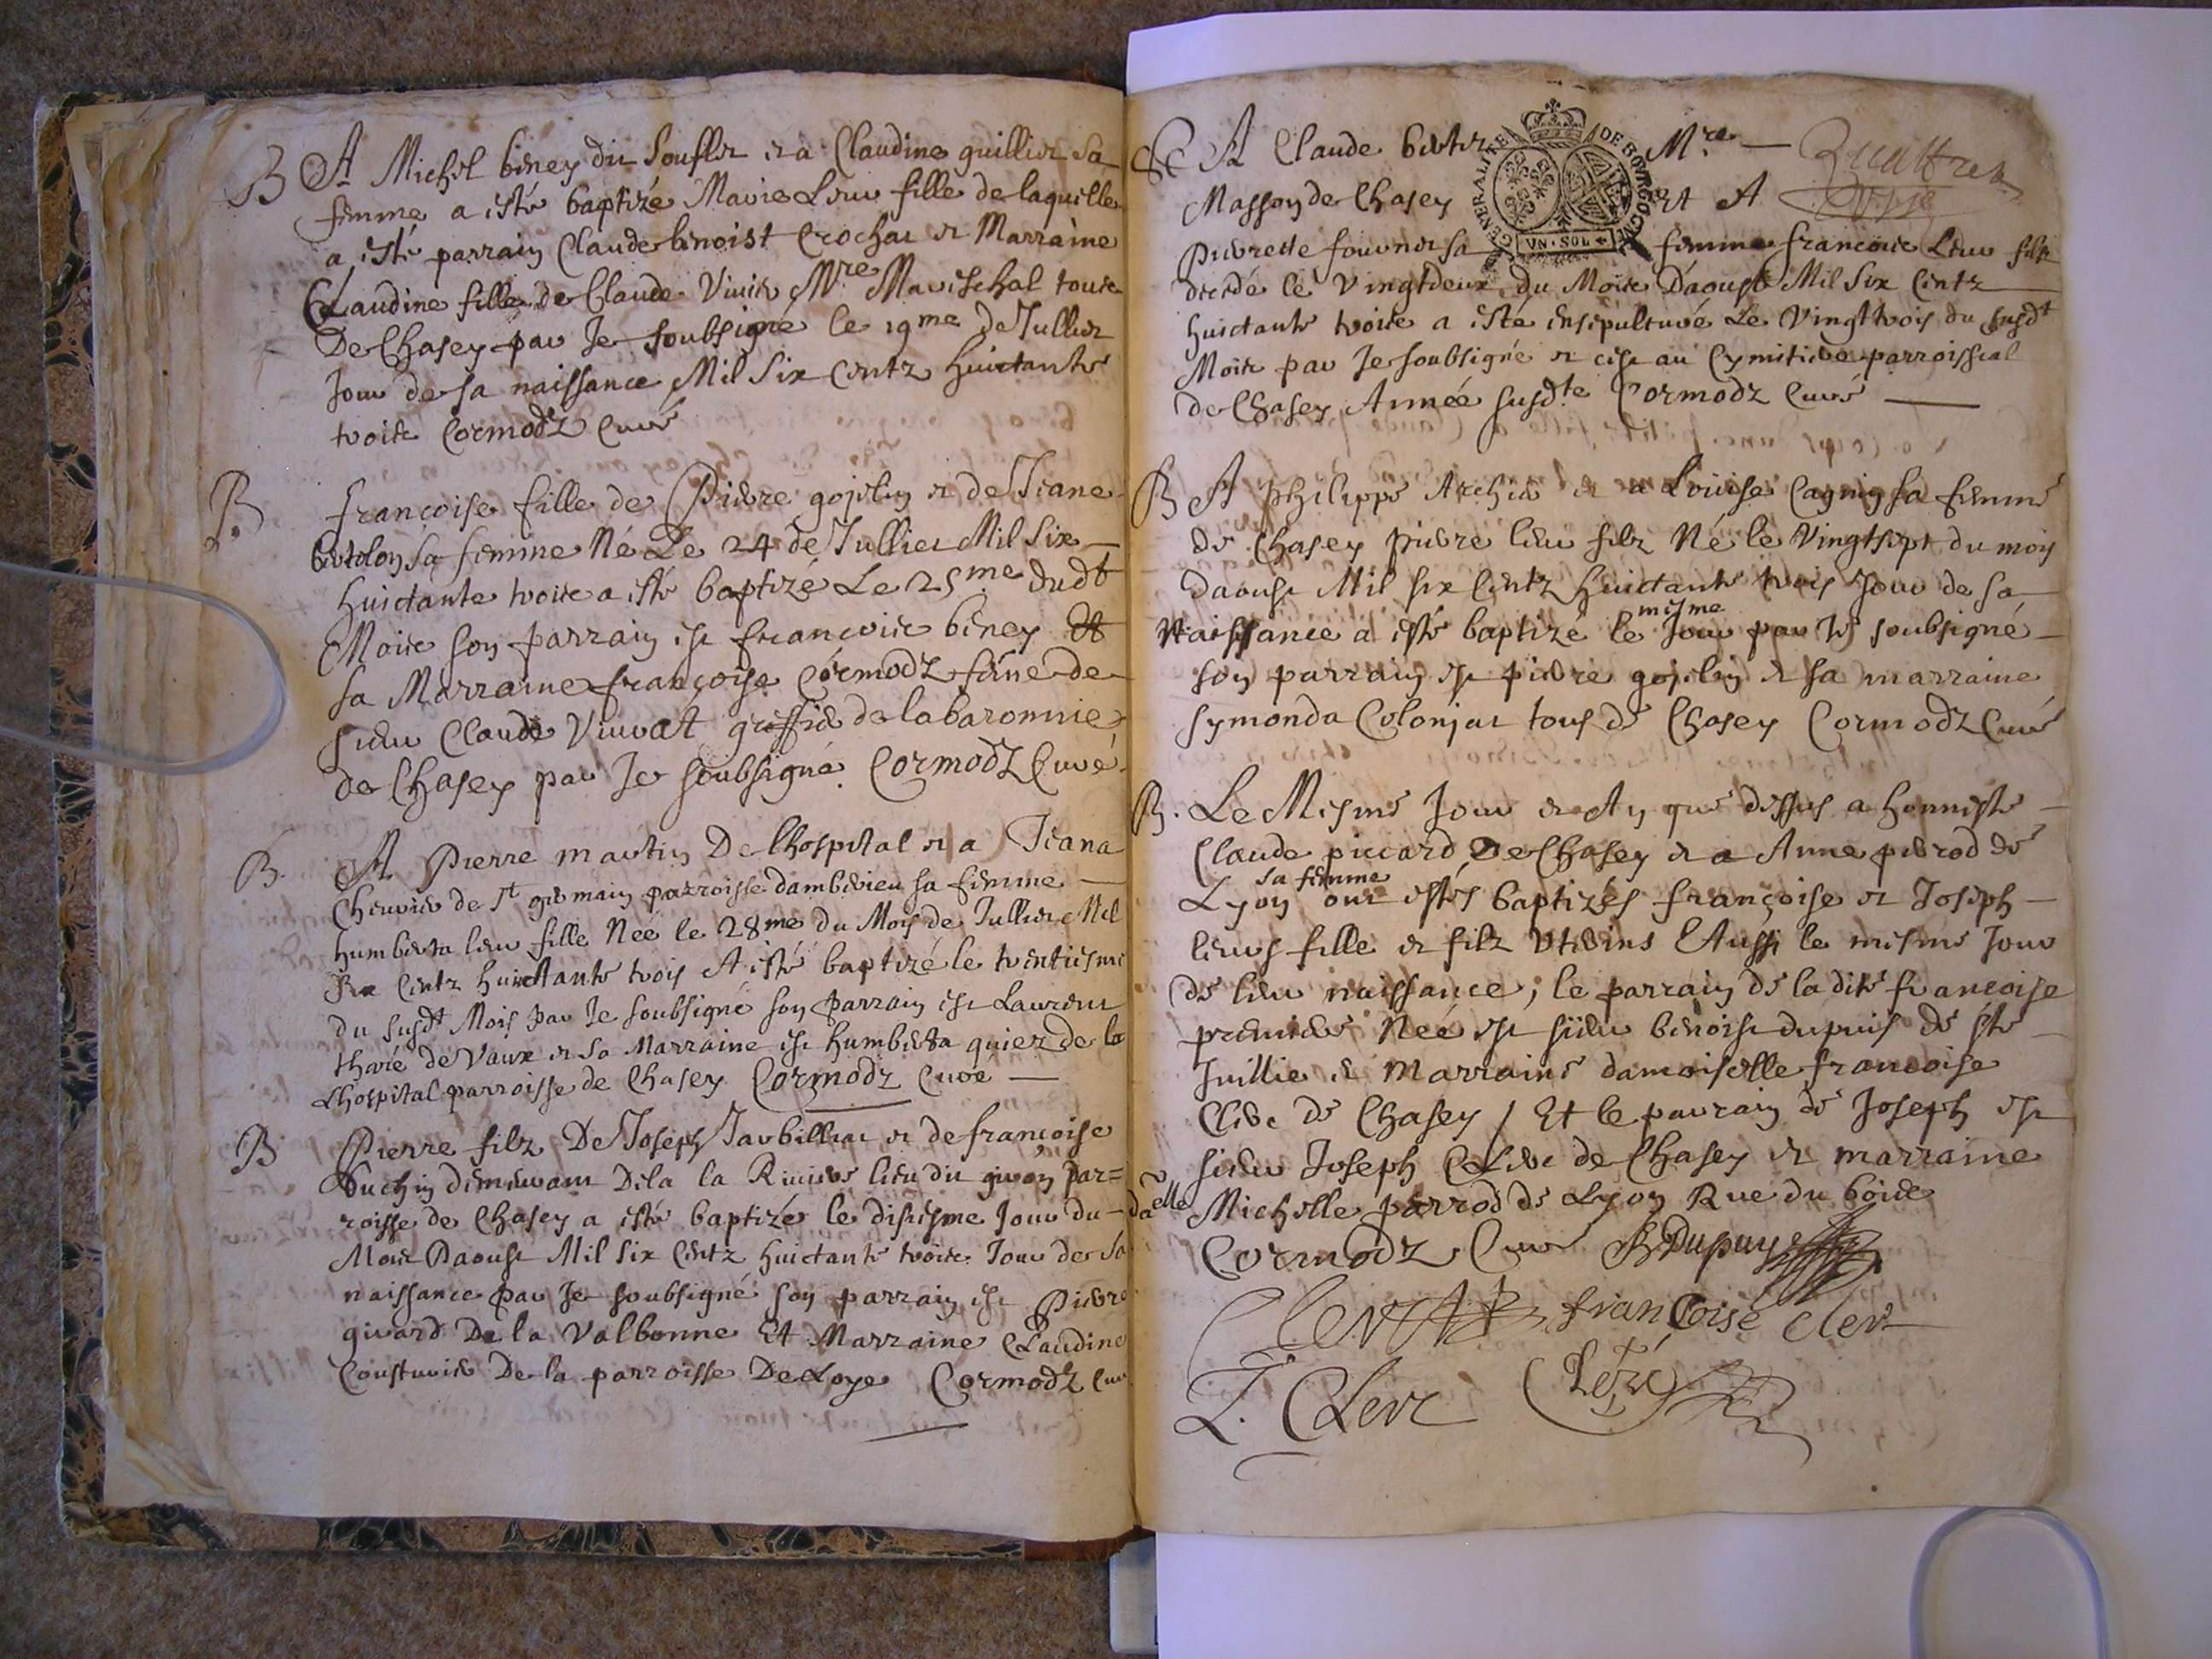 B A Michel biney dit Soufler et a Claudine guillier sa
femme a esté baptizé Marie Leur fille de laquelle
a esté parrain Claude benoist Crochat et Marraine
Claudine fille de Claude Vivier Mre Mareschal touts
De Chasey par Je soubsigné le 19me de Jullier
Jour de sa naissance Mil Six Centz huictante
trois Cormodz Curé
B. françoise fille de Pierre gojelin et de Jeane
bertolon sa femme Né Le 24 de Jullier Mil Six
huictante trois a esté baptizé Le 25me dudt
Mois son parrain est françois biney Et
sa Marraine françoise Cormodz feme de
sieur Claude Vivvat greffier de la baronnie
de Chasey par Je soubsigné Cormodz Curé
B. A Pierre martin De lhospital et a Jeana
Chervier de St germain parroisse damberieu sa femme
humberta leur fille Née le 28me du Mois de Jullier Mil
Six Centz huictante trois A esté baptizé le trentiesme
du susdt Mois par Je soubsigné son parrain est Laurent
tharé de Vaux et sa Marraine est humberta quier de la
Lhospital parroisse de Chasey Cormodz Curé
B Pierre filz De Joseph Jarbillat et de françoise
buchin demeurant Dela la Riviere lieu dit giron par=
roisse de Chasey a esté baptizé le disiesme Jour du
Mois Daoust Mil Six Centz huictante trois Jour de sa
naissance par Je soubsigné son parrain est Pierre
girard De la Valbonne Et Marraine Claudine
Cousturier De la parroisse De Loye Cormodz Cur
A Claude berter Mre
GENERALITE DE BOVRGOGNE
VN·SOL
Masson de Chasey Et A
Pierrette fournier sa femme francois Leur filz
decedé le Vingtdeux du Mois Daoust Mil Six Centz
huictante trois a esté ensepulturé Le Vingttrois du susdt
Mois par Je soubsigné et cest au Cymitiere parroissial
de Chasey Année susdte Cormodz Curé
B A philippe Archer et a Loüise Cagnin sa femme
de Chasey pierre leur filz Né le Vingtsept du mois
daoust Mil six Centz huictante trois Jour de sa
Naissance a esté baptizé le mesme Jour par Je soubsigné
son parrain est pierre gojelin et sa marraine
symonda Colonjat tous de Chasey Cormodz Curé
B. Le Mesme Jour et An que dessus a honneste
Claude piccard De Chasey et a Anne perrod de
Lyon sa femme ont estés baptizés françoise et Joseph
leurs fille et filz Uterins Et Aussi le mesme Jour
de leur naissance; le parrain de la dite francoise
premiere Née est sieur benoist dupuis de ste
Juillie et Marraine damoiselle francoise
Clerc de Chasey / Et le parrain de Joseph est
sieur Joseph Clerc de Chasey et marraine
daelle Michelle perrod de Lyon Rue du bois
Cormodz Curé B Dupuys
Clerc françoise clerc
J. Clerc